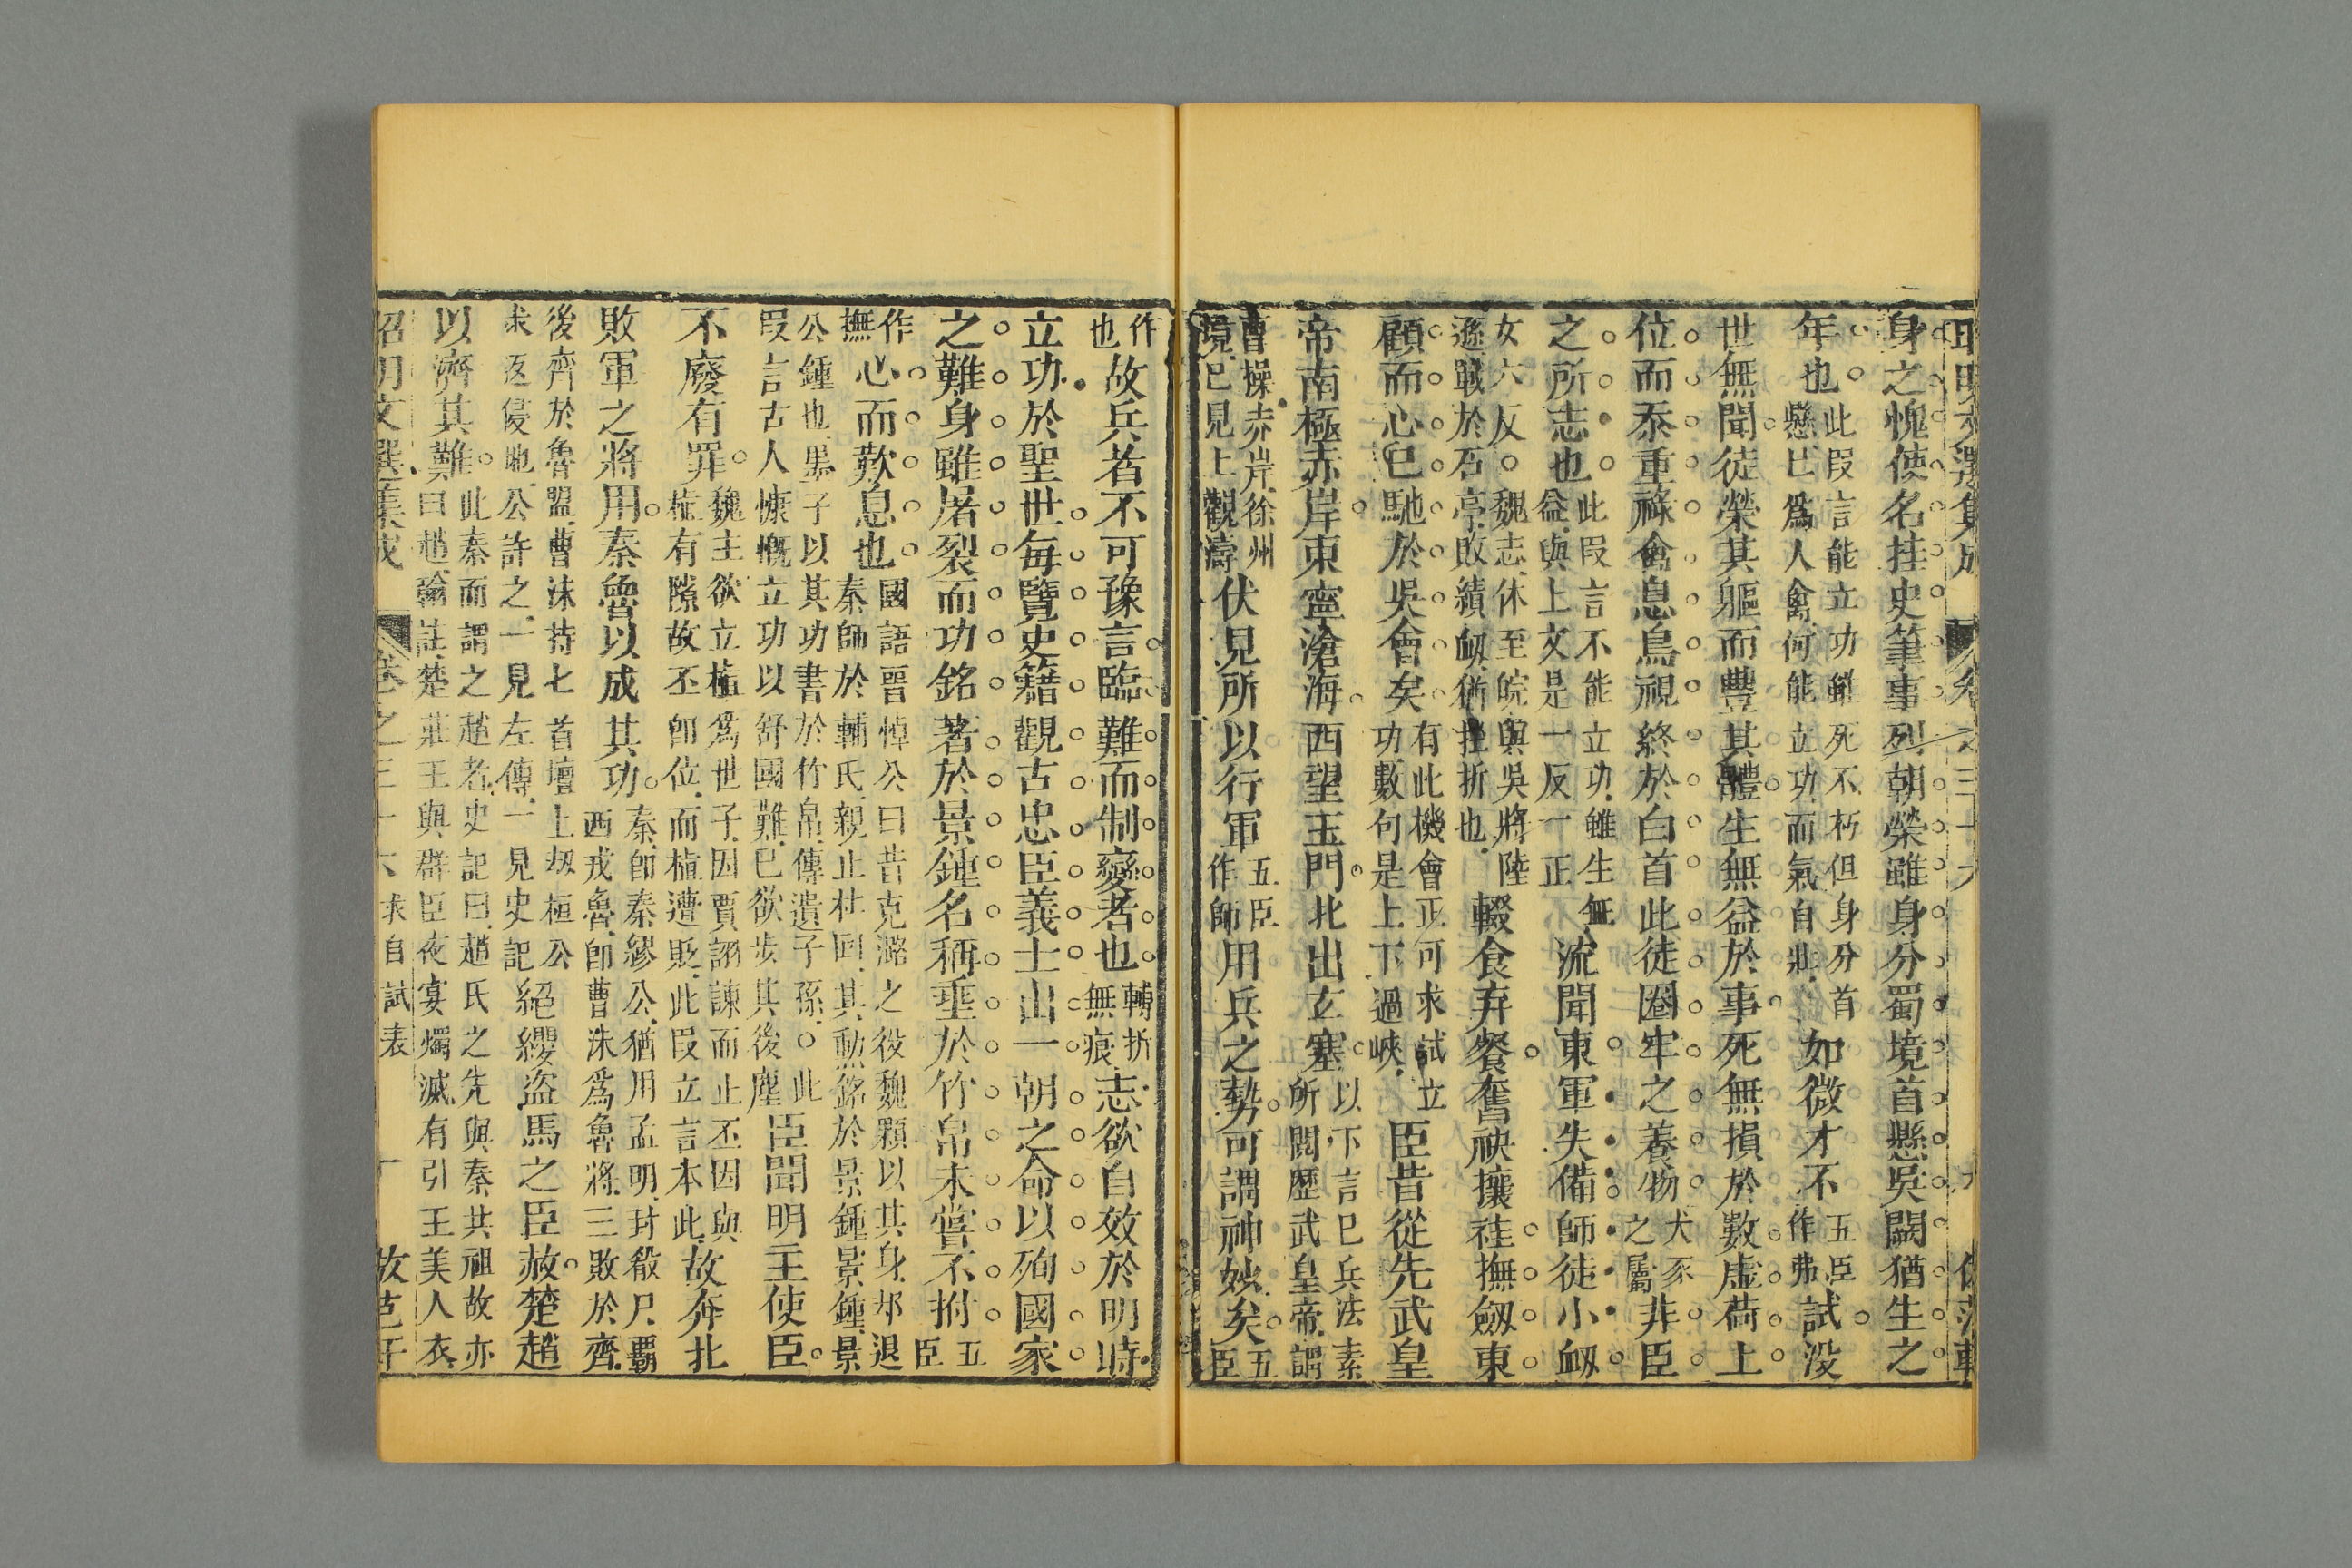 身之愧使名挂史筆事列朝榮雖身分蜀境首懸吳闕猶生之
年也此段言能立功雖死不朽但身分身分首懸已爲人禽何能立功而氣自壯如微才不五臣作弗試沒
世無聞徒榮其軀而豐其體生無益於事死無損於數虛荷上
位而忝重祿禽息鳥視終於白首此徒圈牢之養物犬豕之屬非臣
之所志也此段言不能立功雖生無益與上文是一反一正流聞東軍失備師徒小衂
女六反○魏志休至皖與吳將陸遜戰於石亭敗績衂猶挫折也輟食弃餐奮袂攘衽撫劔東
顧而心已馳於吳會矣有此機會正可求試立功數句是上下過峽臣昔從先武皇
帝南極赤岸東臨滄海西望玉門北出玄塞以下言已兵法素所閱歷武皇帝謂
曹操赤岸徐州境已見上觀濤伏見所以行軍五臣作師用兵之勢可謂神妙矣五臣
作也故兵者不可豫言臨難而制變者也轉折無痕志欲自效於明時
立功於聖世每覽史籍觀古忠臣義士出一朝之命以殉國家
之難身雖屠裂而功銘著於景鍾名稱垂於竹帛未嘗不拊五臣
作撫心而歎息也國語晉悼公曰昔克潞之役魏顆以其身却退秦師於輔氏親止杜回其勳銘於景鍾景鍾景
公鍾也墨子以其功書於竹帛傳遺子孫○此段言古人慷慨立功以舒國難已欲步其後塵臣聞明主使臣
不廢有罪魏主欲立植爲世子因賈詡諫而止丕因與植有隙故丕卽位而植遭貶此段立言本此故奔北
敗軍之將用秦魯以成其功秦卽秦繆公猶用孟明封殽尸覇西戎魯卽曹沬爲魯將三敗於齊
後齊於魯盟曹沬持匕首壇上刼桓公求返侵地公許之一見左傳一見史記絕纓盜馬之臣赦楚趙
以濟其難此秦而謂之趙者史記曰趙氏之先與秦共祖故亦曰趙翰註楚莊王與群臣夜宴燭滅有引王美人衣
昭明文選集成 卷之三十六 求自試表